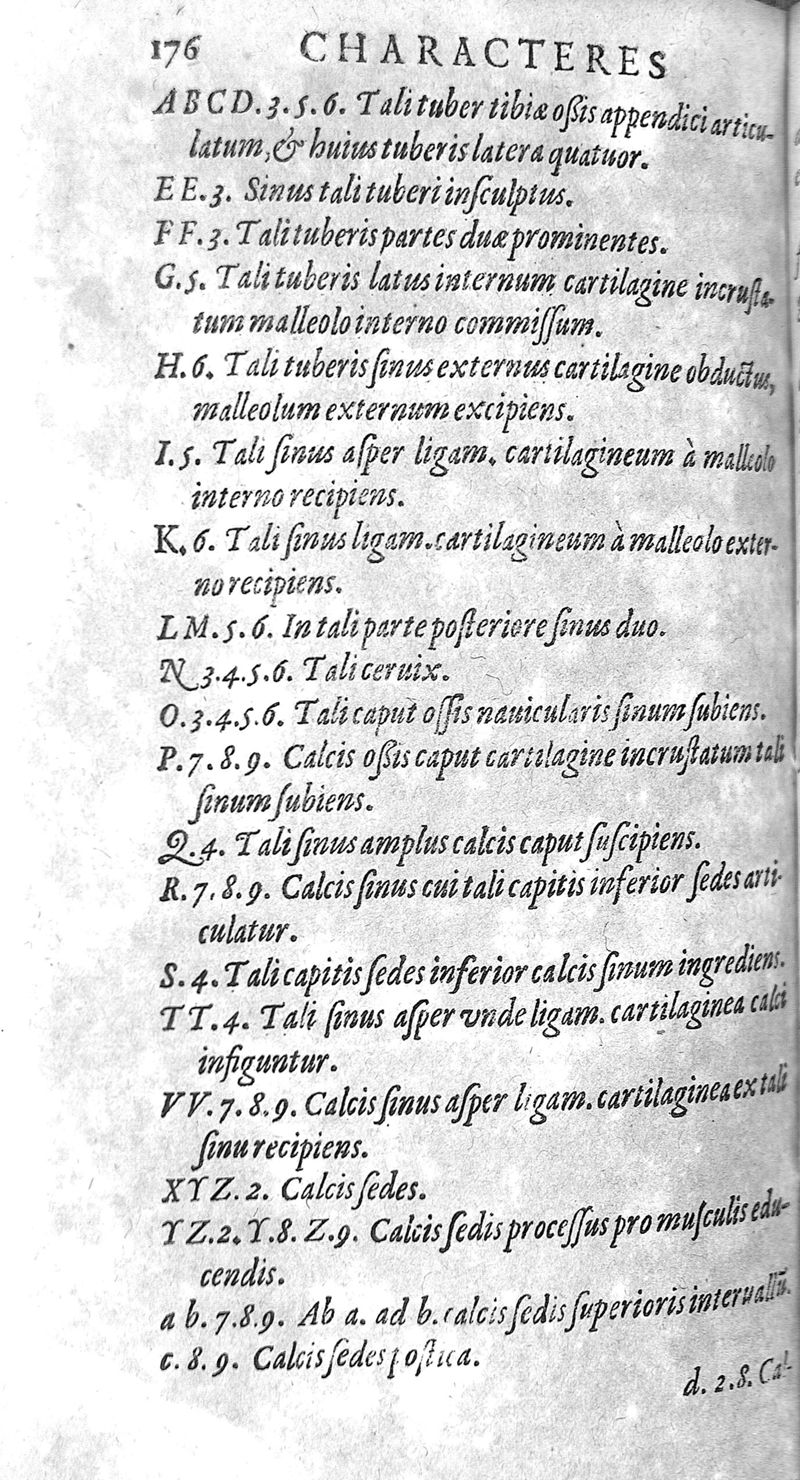 176 CHARACTERES
A B C D. 3. 5. 6. Tali tuber tibiæ oßis appendici articu-
latum, & huius tuberis latera quatuor.
E E. 3. Sinus tali tuberi inſculptus.
F F. 3. Tali tuberis partes duæ prominentes.
G. 5. Tali tuberis latus internum cartilagine incruſta-
tum malleolo interno commiſſum.
H. 6. Tali tuberis ſinus externus cartilagine obductus,
malleolum externum excipiens.
I. 5. Tali ſinus aſper ligam. cartilagineum à malleolo
interno recipiens.
K. 6. Tali ſinus ligam. cartilagineum à malleolo exter-
no recipiens.
L M. 5. 6. In tali parte poſteriore ſinus duo.
N 3. 4. 5. 6. Tali ceruix.
O. 3. 4. 5. 6. Tali caput oſſis nauicularis ſinum ſubiens.
P. 7. 8. 9. Calcis oßis caput cartilagine incruſtatum tali
ſinum ſubiens.
Q. 4. Tali ſinus amplus calcis caput ſuſcipiens.
R. 7. 8. 9. Calcis ſinus cui tali capitis inferior ſedes arti-
culatur.
S. 4. Tali capitis ſedes inferior calcis ſinum ingrediens.
T T. 4. Tali ſinus aſper vnde ligam. cartilaginea calci
infiguntur.
V V. 7. 8. 9. Calcis ſinus aſper ligam. cartilaginea ex tali
ſinu recipiens.
X Y Z. 2. Calcis ſedes.
Y Z. 2. Y. 8. Z. 9. Calcis ſedis proceſſus pro muſculis edu-
cendis.
a b. 7. 8. 9. Ab a. ad b. calcis ſedis ſuperioris interuallū.
c. 8. 9. Calcis ſedes poſtica.
d. 2. 8. Cal-